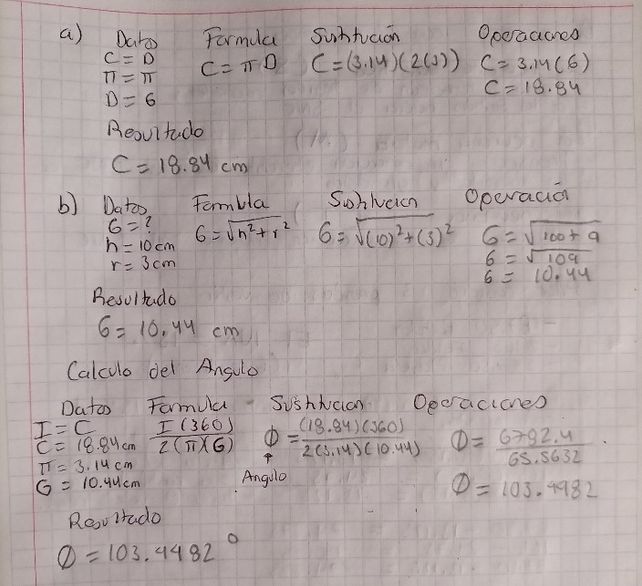 a) Datos Formula Sustitución Operaciones
C = D C = π D C = (3.14)(2(3)) C = 3.14(6)
π = π C = 18.84
D = 6
Resultado
C = 18.84 cm
b) Datos Formula Sustitucion Operación
G = ? G = √h²+r² G = √(10)²+(3)² G = √100+9
h = 10 cm G = √109
r = 3 cm G = 10.44
Resultado
G = 10.44 cm
Calculo del Angulo
Datos Formula Sustitucion Operaciones
I = C I(360) / 2(π)(G) Ø = (18.84)(360) / 2(3.14)(10.44) Ø = 6782.4 / 65.5632
C = 18.84 cm
π = 3.14 cm
G = 10.44 cm Angulo Ø = 103.4482
Resultado
Ø = 103.4482°